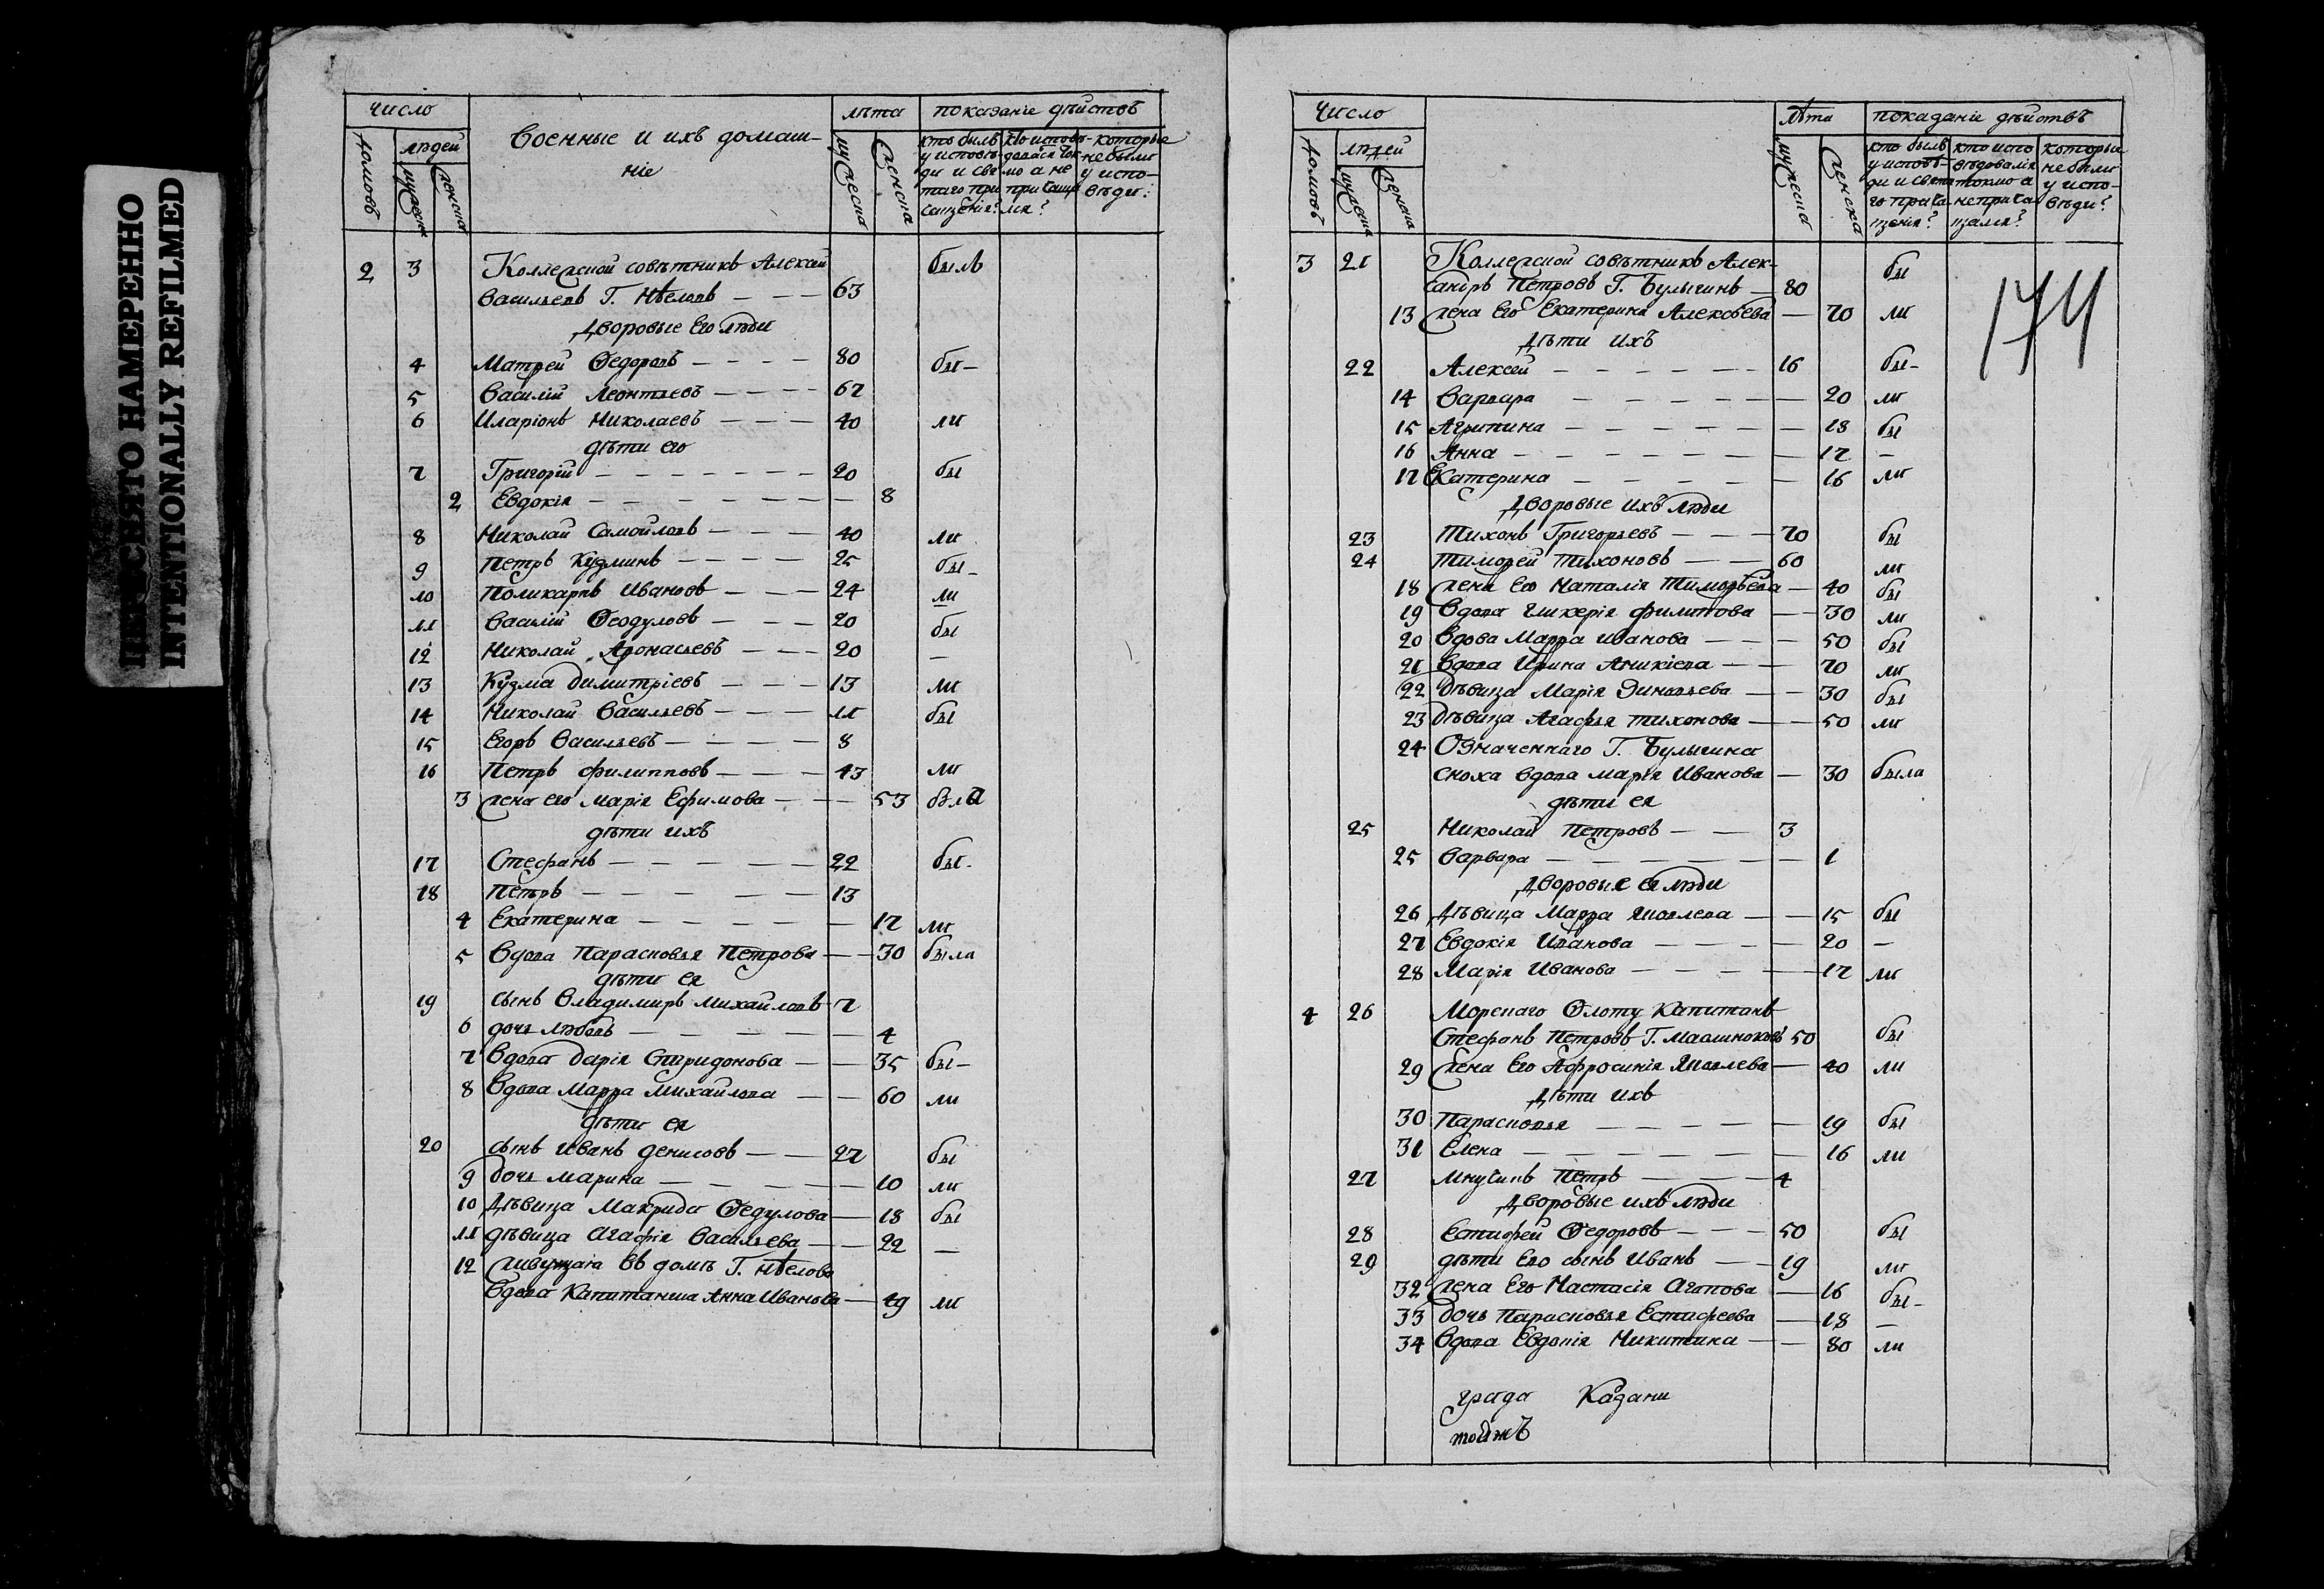 ПЕРЕСНЯТО НАМЕРЕННО
INTENTIONALLY REFILMED
число
Военные и ихъ домаш-
ніе
лѣта
показаніе дѣйствъ
домовъ
людей
мужеска
женска
мужеска
женска
кто былъ у исповѣди и святаго причащенія?
кто исповѣдался токмо а не причащался?
которые не были у исповѣди?
2 3 Коллежской совѣтникъ Алексѣй былъ
Васильевъ Г. Нѣеловъ — — — 63
Дворовые Его люди
4 Матфей Ѳедоровъ — — — — 80 бы-
5 Василій Леонтьевъ — — — — 67
6 Иларіонъ Николаевъ — — — 40 ли
дѣти его
7 Григорій — — — — — — — 20 бы
2 Евдокія — — — — — — — 8
8 Николай Самойловъ — — — — 40 ли
9 Петръ Кузминъ — — — — 25 бы-
10 Поликарпъ Ивановъ — — — 24 ли
11 Василій Ѳеодуловъ — — — 20 бы
12 Николай Афонасьевъ — — — 20 —
13 Кузма Димитріевъ — — — 13 ли
14 Николай Васильевъ — — — 11 бы
15 Егоръ Васильевъ — — — — 8
16 Петръ Филипповъ — — — 43 ли
3 жена его Марія Ефимова — — — 53 была
дѣти ихъ
17 Стефанъ — — — — — 22 бы-
18 Петръ — — — — — 13
4 Екатерина — — — — — 17 ли
5 Вдова Парасковья Петрова — — 30 была
дѣти ея
19 сынъ Владимиръ Михайловъ — 7
6 дочь Любовь — — — — — 4
7 Вдова Дарія Спиридонова — — 35 бы-
8 Вдова Марфа Михайлова — — 60 ли
дѣти ея
20 сынъ Иванъ Денисовъ — — 27 бы
9 дочь Марина — — — — — 10 ли
10 Дѣвица Макрида Ѳедулова — 18 бы
11 дѣвица Агафія Васильева — — 22 —
12 живущая въ домѣ Г. Нѣелова
Вдова Капитанша Анна Иванова — 49 ли
Число
Лѣта
показаніе дѣйствъ
домовъ
людей
мужеска
женска
мужеска
женска
кто былъ у исповѣди и святаго причащенія?
кто исповѣдовался токмо а не причащался?
которые не были у исповѣди?
174
3 21 Коллежской совѣтникъ Алек- бы
сандръ Петровъ Г. Булыгинъ — 80
13 жена Его Екатерина Алексѣева — 70 ли
Дѣти ихъ
22 Алексѣй — — — — — — 16 бы-
14 Варвара — — — — — — 20 ли
15 Агрипина — — — — — — 18 бы
16 Анна — — — — — — — 17 —
17 Катерина — — — — — 16 ли
Дворовые ихъ люди
23 Тихонъ Григорьевъ — — — 70 бы
24 Тимофей Тихоновъ — — 60 ли
18 жена Его Наталія Тимофѣева — 40 бы
19 Вдова Гликерія Филипова — 30 ли
20 Вдова Марфа Иванова — — — 50 бы
21 Вдова Ирина Аникіева — — 70 ли
22 Дѣвица Марія Зиновьева — — 30 бы
23 Дѣвица Агафья Тихонова — — 50 ли
24 Означеннаго Г. Булыгина
сноха вдова Марія Иванова — 30 была
дѣти ея
25 Николай Петровъ — — 3
25 Варвара — — — — — — — 1
Дворовые ея люди
26 Дѣвица Марфа Яковлева — — 15 бы
27 Евдокія Иванова — — — — 20 —
28 Марія Иванова — — — — 17 ли
4 26 Морскаго Флоту Капитанъ
Стефанъ Петровъ Г. 50 бы
29 жена Его Афросинія Яковлева — 40 ли
Дѣти ихъ
30 Парасковья — — — — — 19 бы
31 Елена — — — — — — — 16 ли
27 Петръ — — — — 4
Дворовые ихъ люди
28 Естифей Ѳедоровъ — — — 50 бы
29 дѣти Его сынъ Иванъ — — 19 ли
32 жена Его Настасія Агапова — 16 бы-
33 дочь Парасковья Естифеева — 18 —
34 Вдова Евдокія Никитина — — 80 ли
града Казани